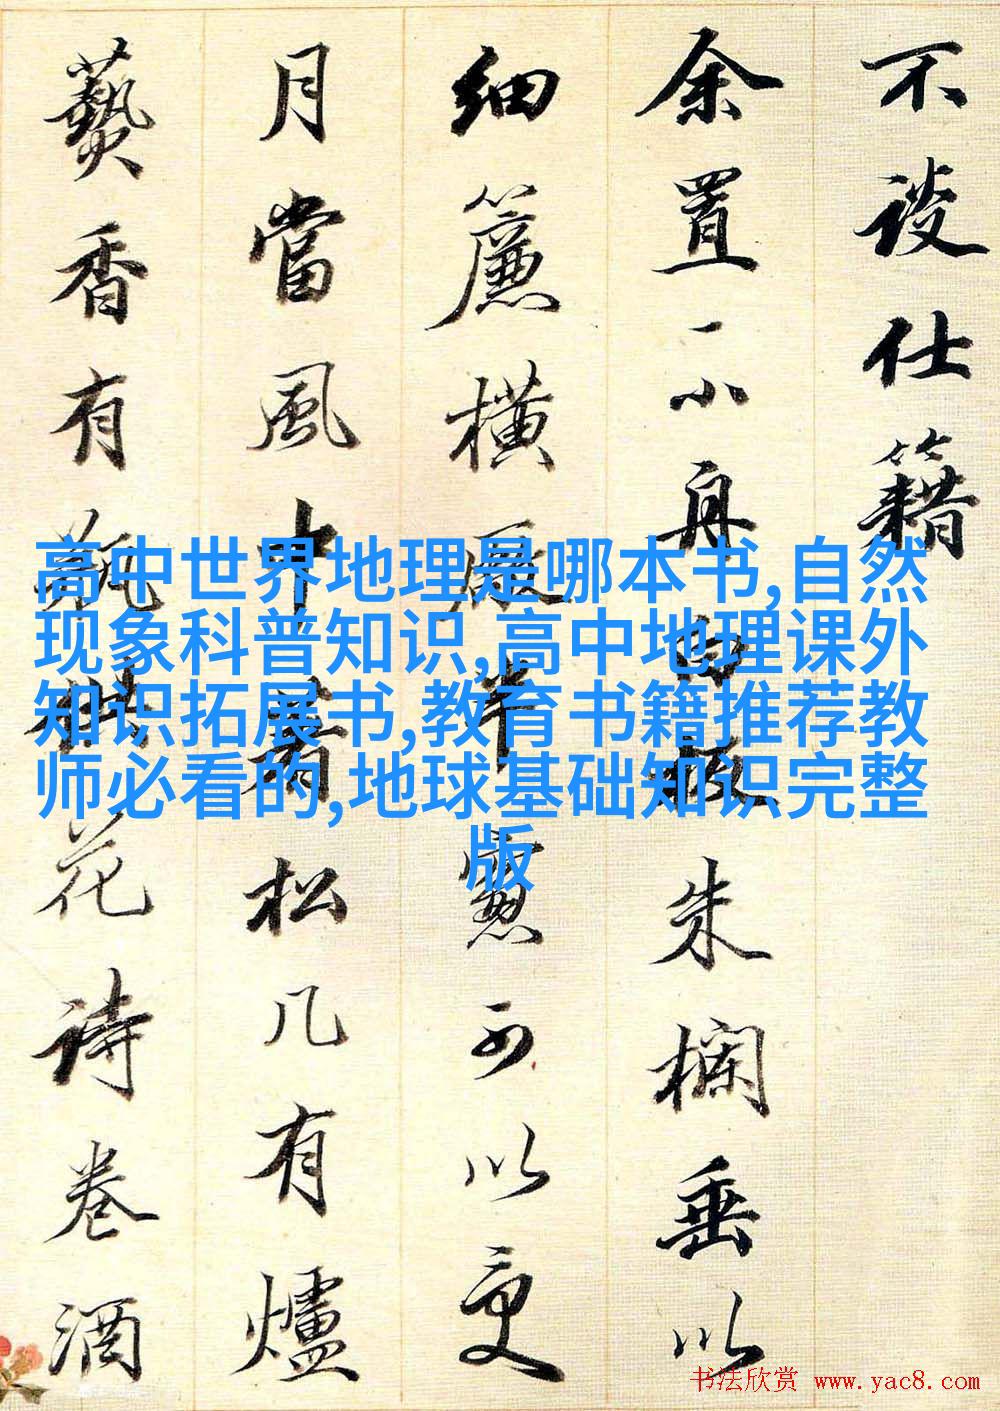 不談仕籍
余置一小舟白板朱欄垂以
細簾橫半窓可以受
月當風中着松几有爐
爇香有瓶供花詩卷酒
高中世界地理是哪本书,自然
现象科普知识,高中地理课外
知识拓展书,教育书籍推荐教
师必看的,地球基础知识完整
版
书法欣赏 www.yac8.com